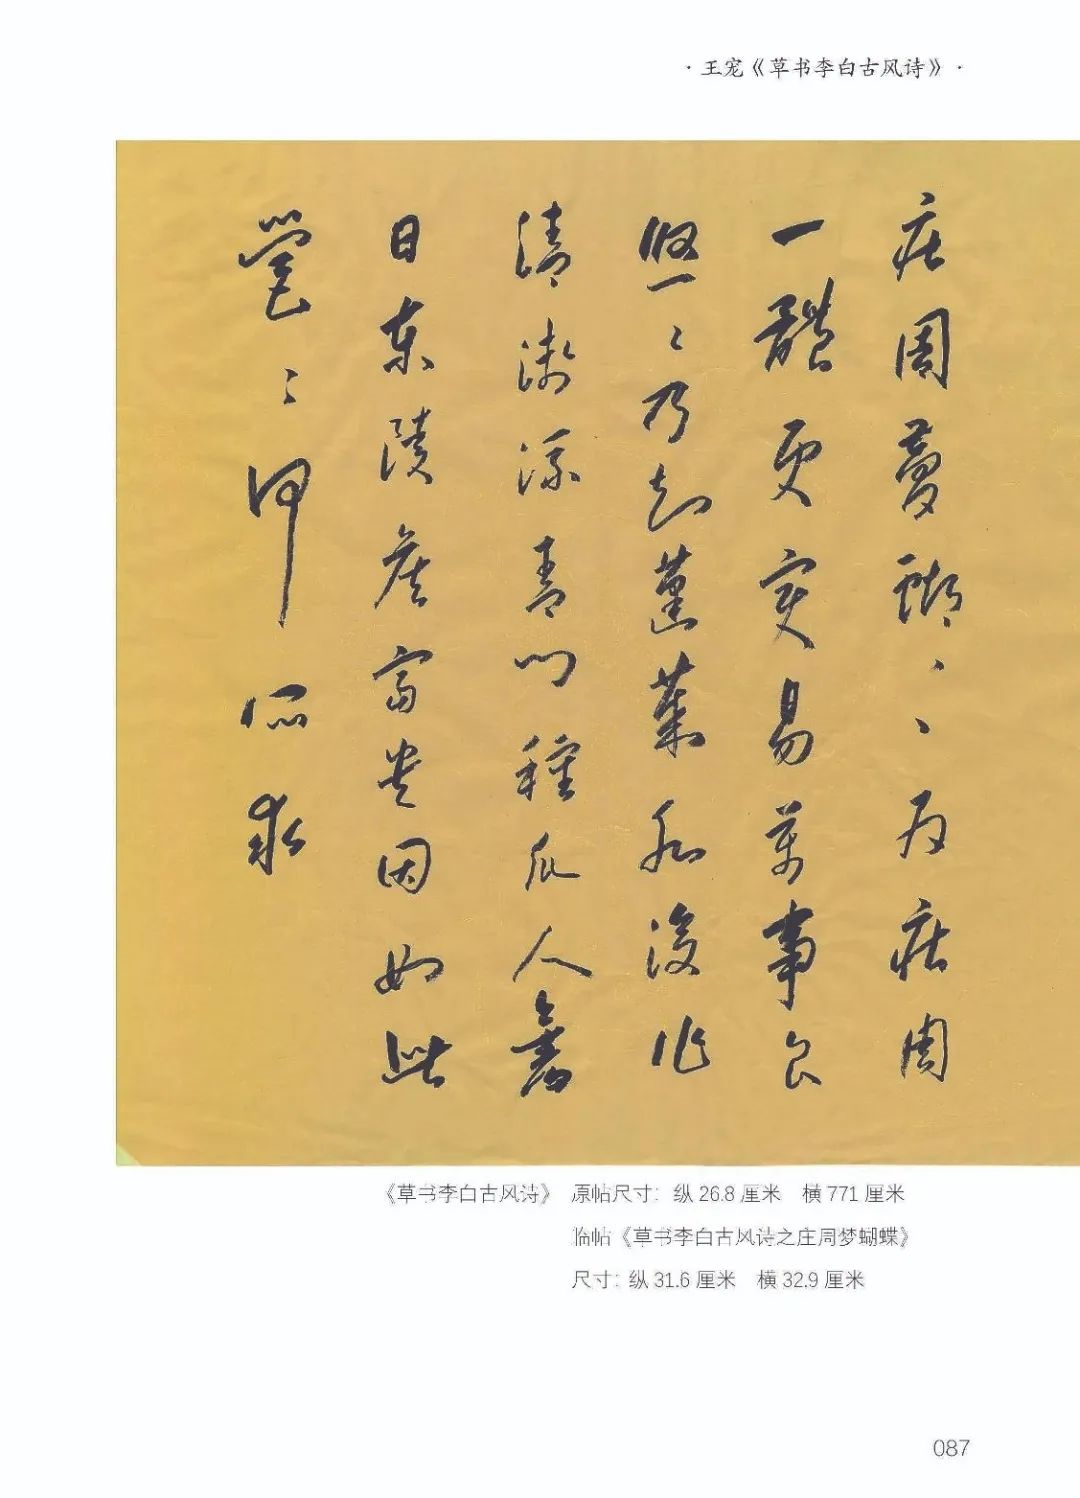 ·王宠《草书李白古风诗》·
庄周夢蝴〻〻为庄周
一體更變易萬事良
悠〻乃知蓬萊水復作
清淺流青門種瓜人舊
日東陵侯富貴因如此
營〻何所求
《草书李白古风诗》 原帖尺寸：纵 26.8 厘米 横 771 厘米
临帖《草书李白古风诗之庄周梦蝴蝶》
尺寸：纵 31.6 厘米 横 32.9 厘米
087